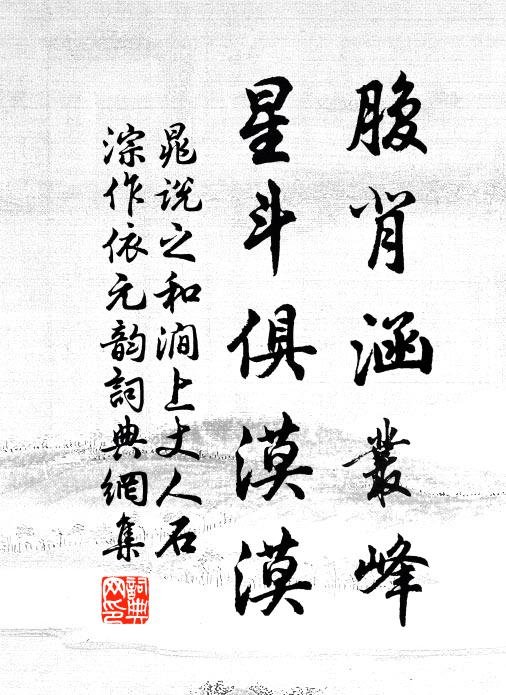 腹背涵叢峰
星斗俱漠漠
晁說之和澗上丈人石
淙作依元韵詞典網集
詞典网印